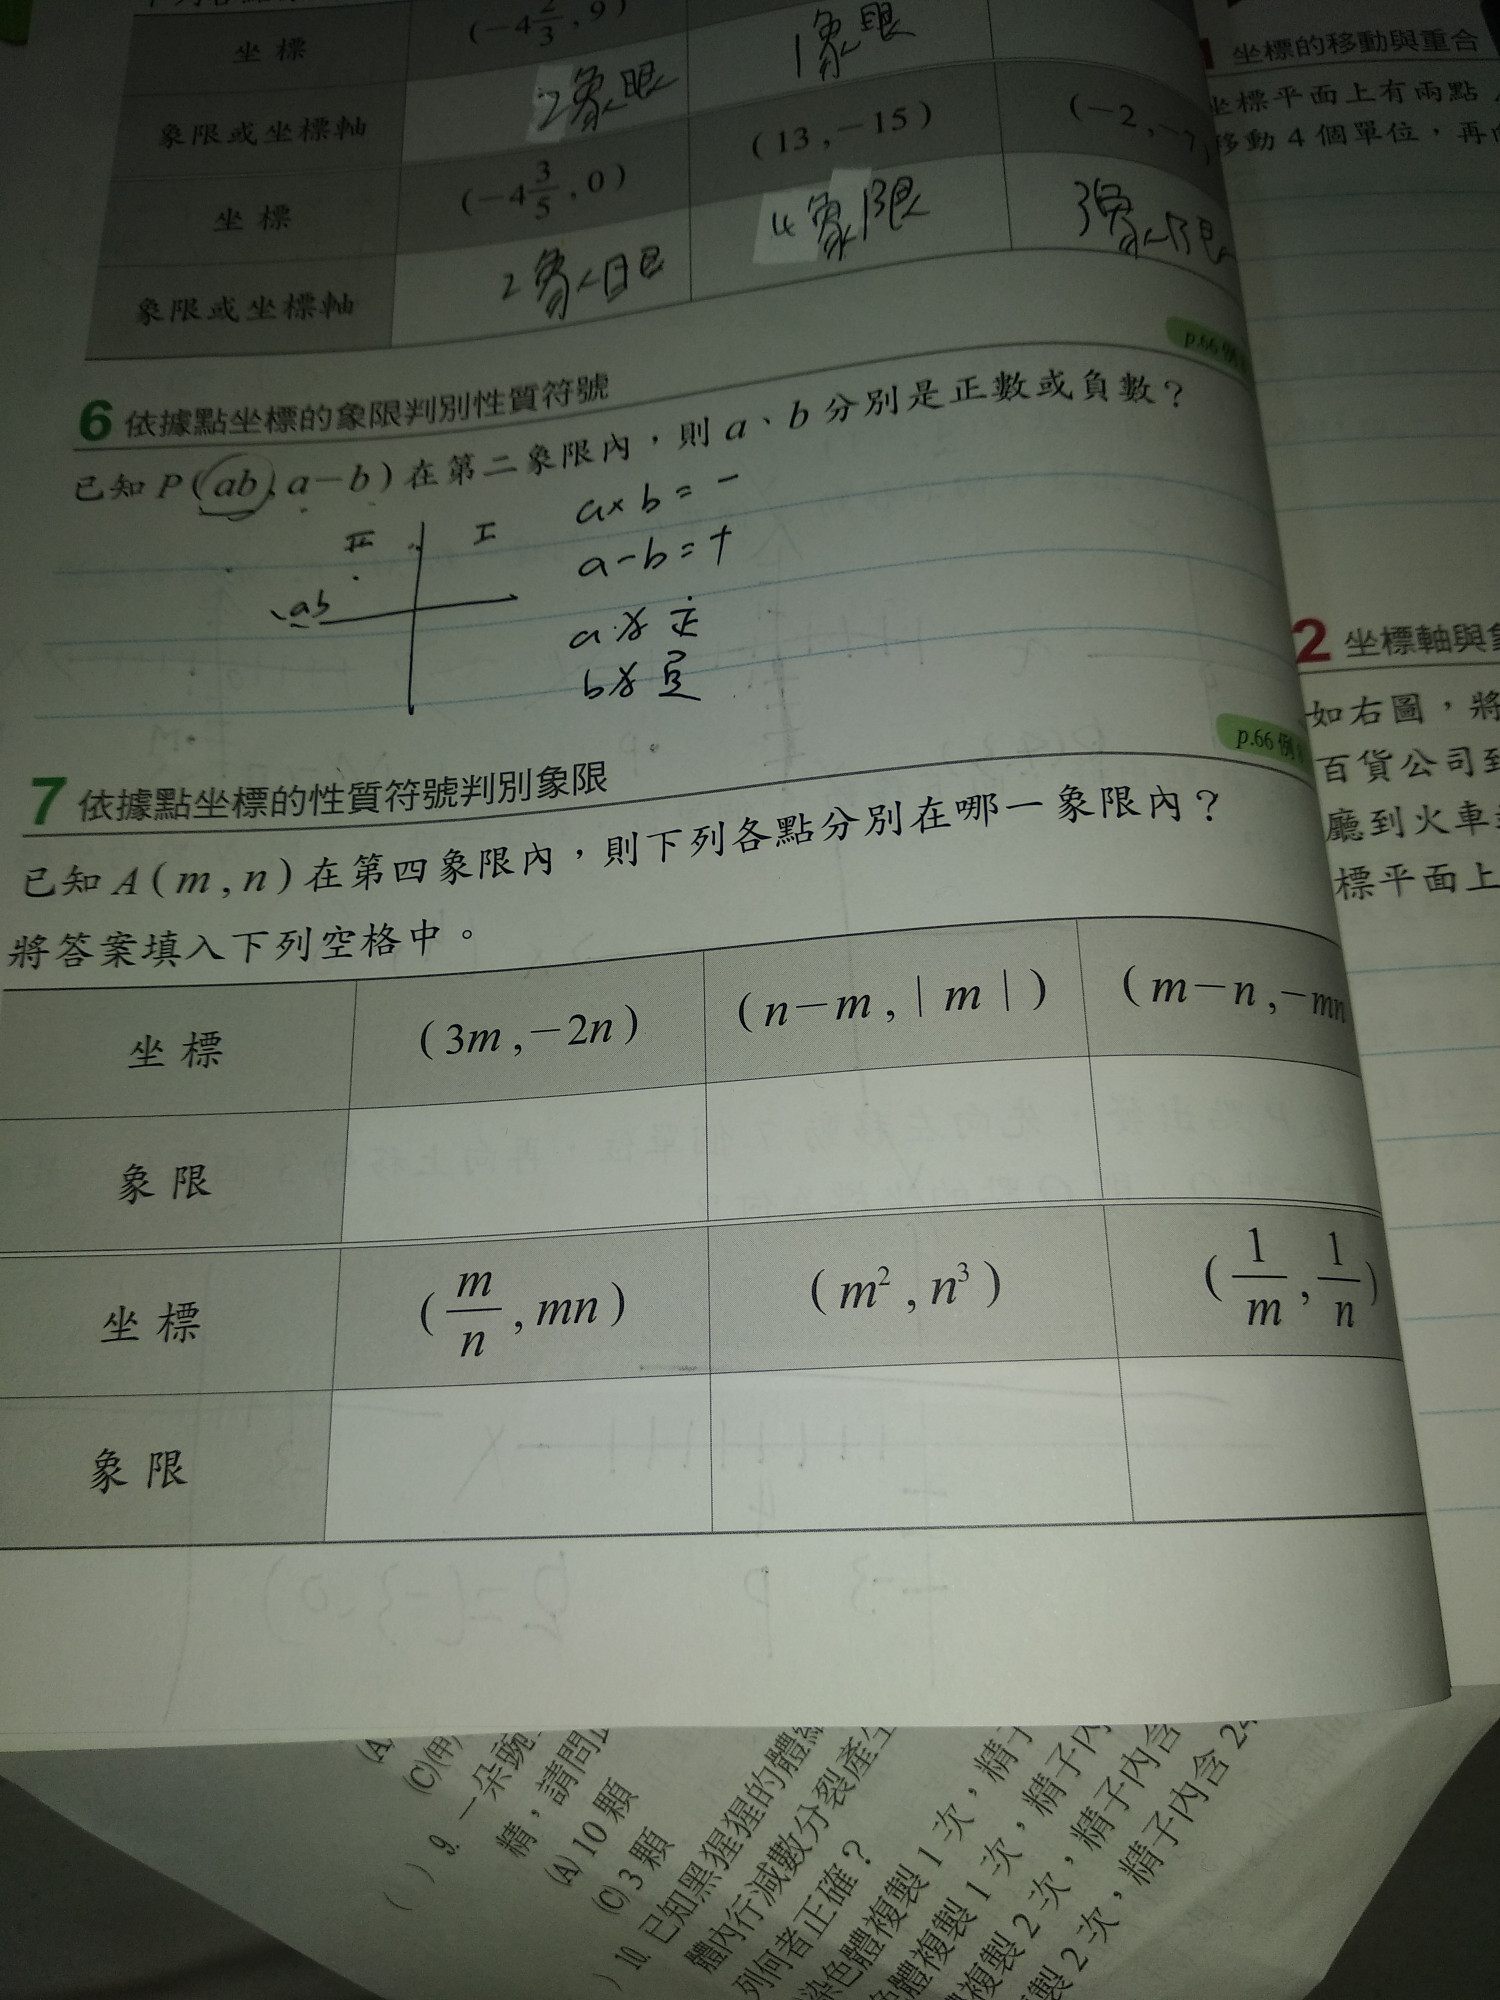 坐標
(-4 2/3, 9)
象限或坐標軸
2象限
1象限
坐標
(-4 3/5, 0)
(13, -15)
(-2, -7
象限或坐標軸
4象限
3象限
p.66 例
6 依據點坐標的象限判別性質符號
已知 P(ab, a-b)在第二象限內，則 a、b 分別是正數或負數？
II I
ab
a×b=-
a-b=+
a必正
p.66 例
7 依據點坐標的性質符號判別象限
已知 A(m, n)在第四象限內，則下列各點分別在哪一象限內？
將答案填入下列空格中。
坐標
(3m, -2n)
(n-m, |m|)
(m-n, -mn
象限
坐標
(m/n, mn)
(m², n³)
(1/m, 1/n)
象限
坐標的移動與重合
坐標平面上有兩點
移動 4 個單位，再
2 坐標軸與
如右圖，將
百貨公司到
廳到火車
標平面上
(C)(甲)
( ) 9. 一朵豌
精，請問
(A) 10 顆
(C) 3 顆
) 10. 已知黑猩猩的體
體內行減數分裂產生
列何者正確？
染色體複製 1 次，精子
色體複製 1 次，精子內
複製 2 次，精子內含
製 2 次，精子內含 24